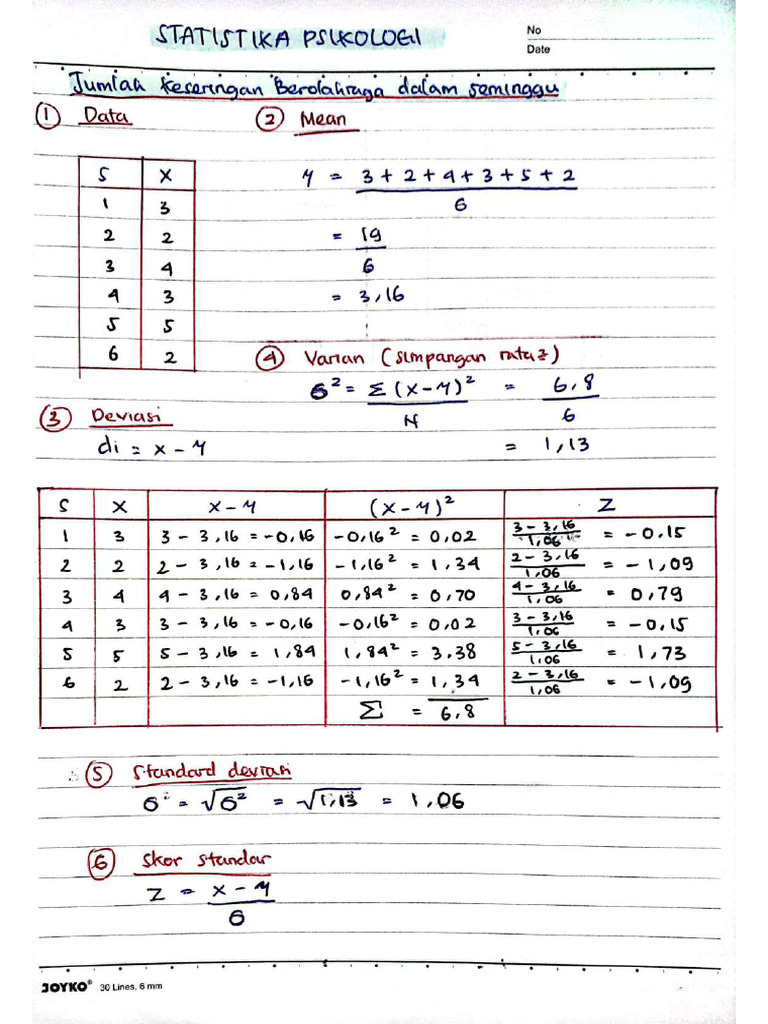 STATISTIKA PSIKOLOGI
No
Date
Jumlah Keseringan Berolahraga dalam seminggu
① Data
② Mean
S X
1 3
2 2
3 4
4 3
5 5
6 2
M = 3 + 2 + 4 + 3 + 5 + 2 / 6
= 19 / 6
= 3,16
④ Varian (simpangan rata2)
σ² = Σ (X – M)² / N = 6,8 / 6
= 1,13
③ Deviasi
di = X – M
S X X – M (X – M)² Z
1 3 3 – 3,16 = –0,16 –0,16² = 0,02 3 – 3,16 / 1,06 = –0,15
2 2 2 – 3,16 = –1,16 –1,16² = 1,34 2 – 3,16 / 1,06 = –1,09
3 4 4 – 3,16 = 0,84 0,84² = 0,70 4 – 3,16 / 1,06 = 0,79
4 3 3 – 3,16 = –0,16 –0,16² = 0,02 3 – 3,16 / 1,06 = –0,15
5 5 5 – 3,16 = 1,84 1,84² = 3.38 5 – 3,16 / 1,06 = 1,73
6 2 2 – 3,16 = –1,16 –1,16² = 1,34 2 – 3,16 / 1,06 = –1,09
Σ = 6,8
⑤ Standard deviasi
σ = √σ² = √1,13 = 1,06
⑥ Skor standar
Z = X – M / σ
JOYKO® 30 Lines, 6 mm